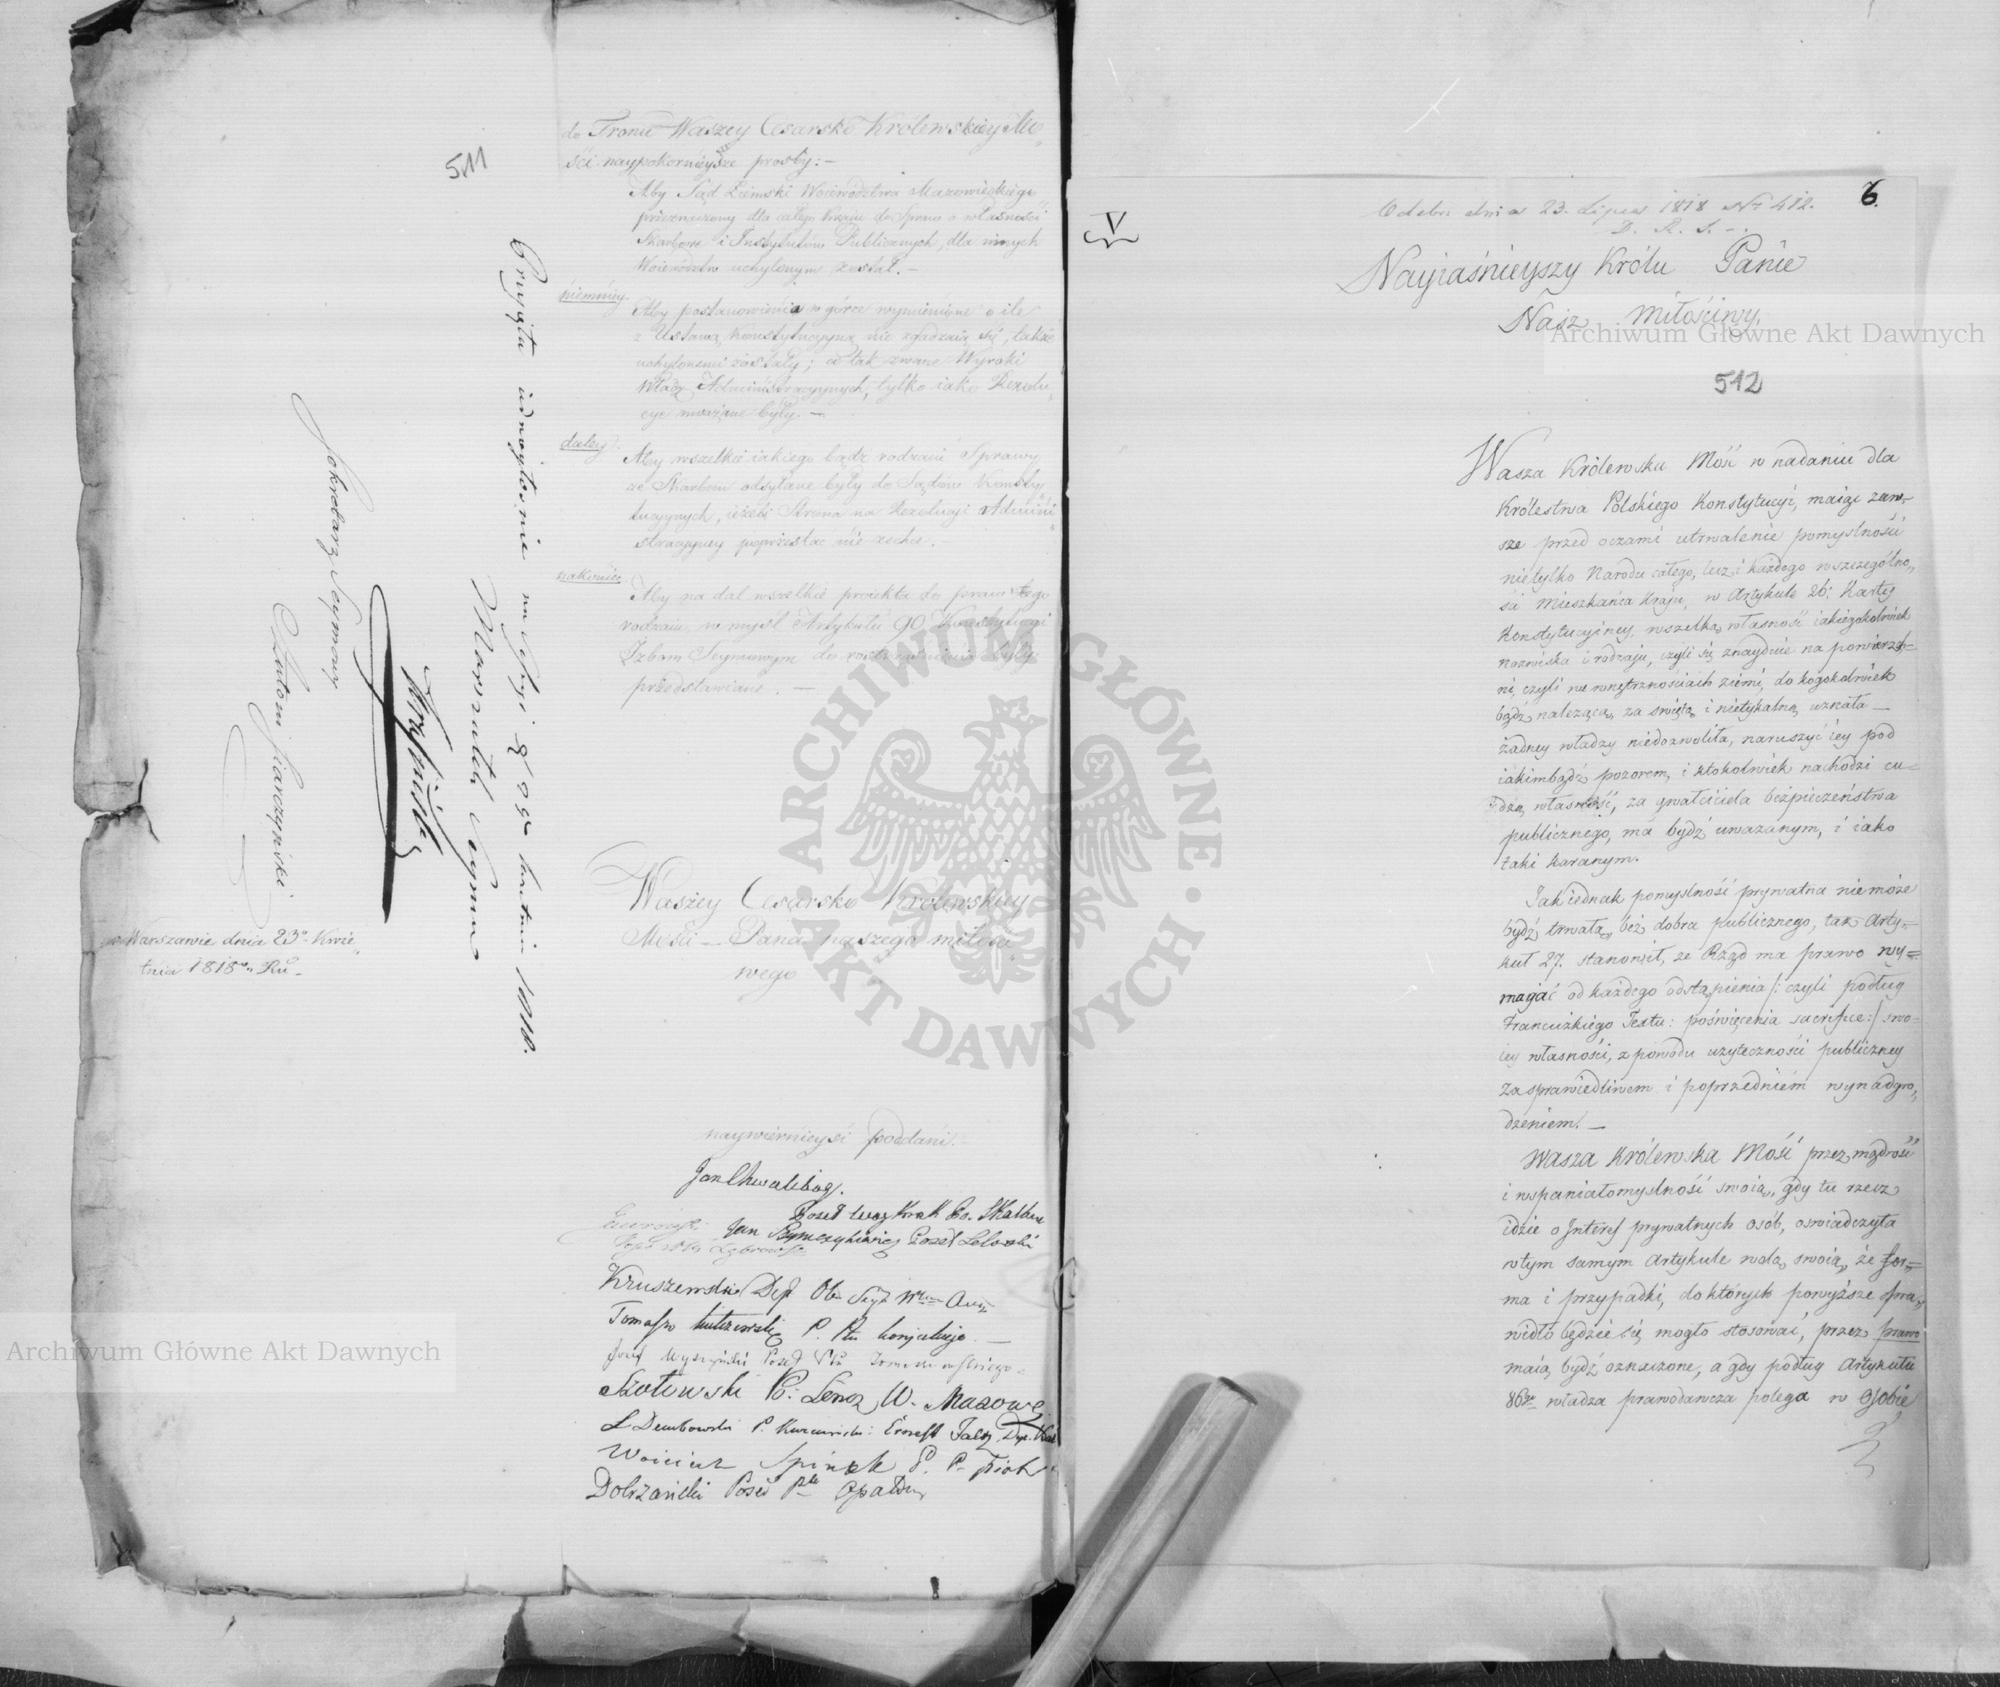 511
do Tronu Waszey Cesarsko Królewskiey Mo„
ści naypokornieysze prośby: —
Aby Sąd Ziemski Woiewództwa Mazowieckiego
przeznaczony dla całego kraiu do Spraw o własności
Skarbowe i Instytutów Publicznych, dla innych
Woiewództw uchylonym został. —
niemniey.
Aby postanowienia w górze wymienione o ile
z Ustawą Konstytucyyną nie zgadzaią się, także
uchylonemi zostały; a tak zwane Wyroki
Władz Administracyynych, tylko iako Rezolu„
cye uważane były. —
daley.
Aby wszelkie iakiego bądź rodzaiu Sprawy
ze Skarbem odsyłane były do Sądów Konsty„
tucyynych, ieżeli Strona na Rezolucyi Admini„
stracyyney poprzestać nie zechce. —
nakoniec
Aby na dal wszelkie proiekta do praw tego
rodzaiu, w myśl Artykułu 90 Konstytucyi
Izbom Seymowym do roztrząśnienia były
przedstawiane. —
Waszey Cesarsko Królewskiey
Mości — Pana naszego miłości„
wego
naywiernieysi poddani.
Jan Chwalibog.
Poseł Woy Krak Po. Skalbm
Jan Szymczykiewicz Poseł Lelowski
Kruszewski Dep
Tomasz P. Ptu
Józef Wyszyński Poseł Ptu
W. Mazowe
L Dembowski P. Ernest Dep.
Woiciech P. P
Dobrzański Poseł Ptu Opatow
Przyięta iednogłośnie na Sessyi kwietnia 1818.
Marszałek Seymu
Krasiński
Sekretarz Seymowy
Antoni Jarczynski
w Warszawie dnia 23o Kwie„
tnia 1818o Ru_
V
6.
Odebr. dnia 23. Lipca 1818 No 412.
D. R. S. —
Nayiaśnieyszy Królu Panie
Nasz Miłościwy,
512
Wasza Królewska Mość w nadaniu dla
Królestwa Polskiego Konstytucyi, maiąc zaw=
sze przed oczami utrwalenie pomyslności
nietylko Narodu całego, lecz i każdego w szczególno„
ści Mieszkańca Kraju, w Artykule 26: Karty
Konstytucyiney, wszelką własność iakiegokolwiek
nazwiska i rodzaju, czyli się znayduie na powierzch=
ni, czyli we wnętrznościach ziemi, do kogokolwiek
bądź należącą, za świętą i nietykalną uznała —
żadney władzy niedozwoliła, naruszyć iey pod
iakimbądź pozorem, i ktokolwiek nachodzi cu=
dzą własność, za gwałciciela bezpieczeństwa
publicznego, ma bydź uważanym, i iako
taki karanym.
Jak iednak pomyslność prywatna nie może
bydź trwałą, bez dobra publicznego, tak Arty=
kuł 27. stanowił, że Rząd ma prawo wy=
magać od każdego odstąpienia /: czyli podług
Francuzkiego Textu: poświęcenia sacrifice :/ swo=
iey własności, z powodu użyteczności publiczney
za sprawiedliwem i poprzedniém wynadgro„
dzeniem. —
Wasza Królewska Mość przez mądrość
i wspaniałomyslność swoią, gdy tu rzecz
idzie o Interes prywatnych osób, oświadczyła
w tym samym Artykule wolą swoią, że for=
ma i przypadki, do których powyższe pra„
widło będzie się mogło stosować, przez prawo
maią bydź oznaczone, a gdy podług Artykułu
86go władza prawodawcza polega w Osobie
ARCHIWUM GŁÓWNE AKT DAWNYCH
Archiwum Główne Akt Dawnych
Archiwum Główne Akt Dawnych